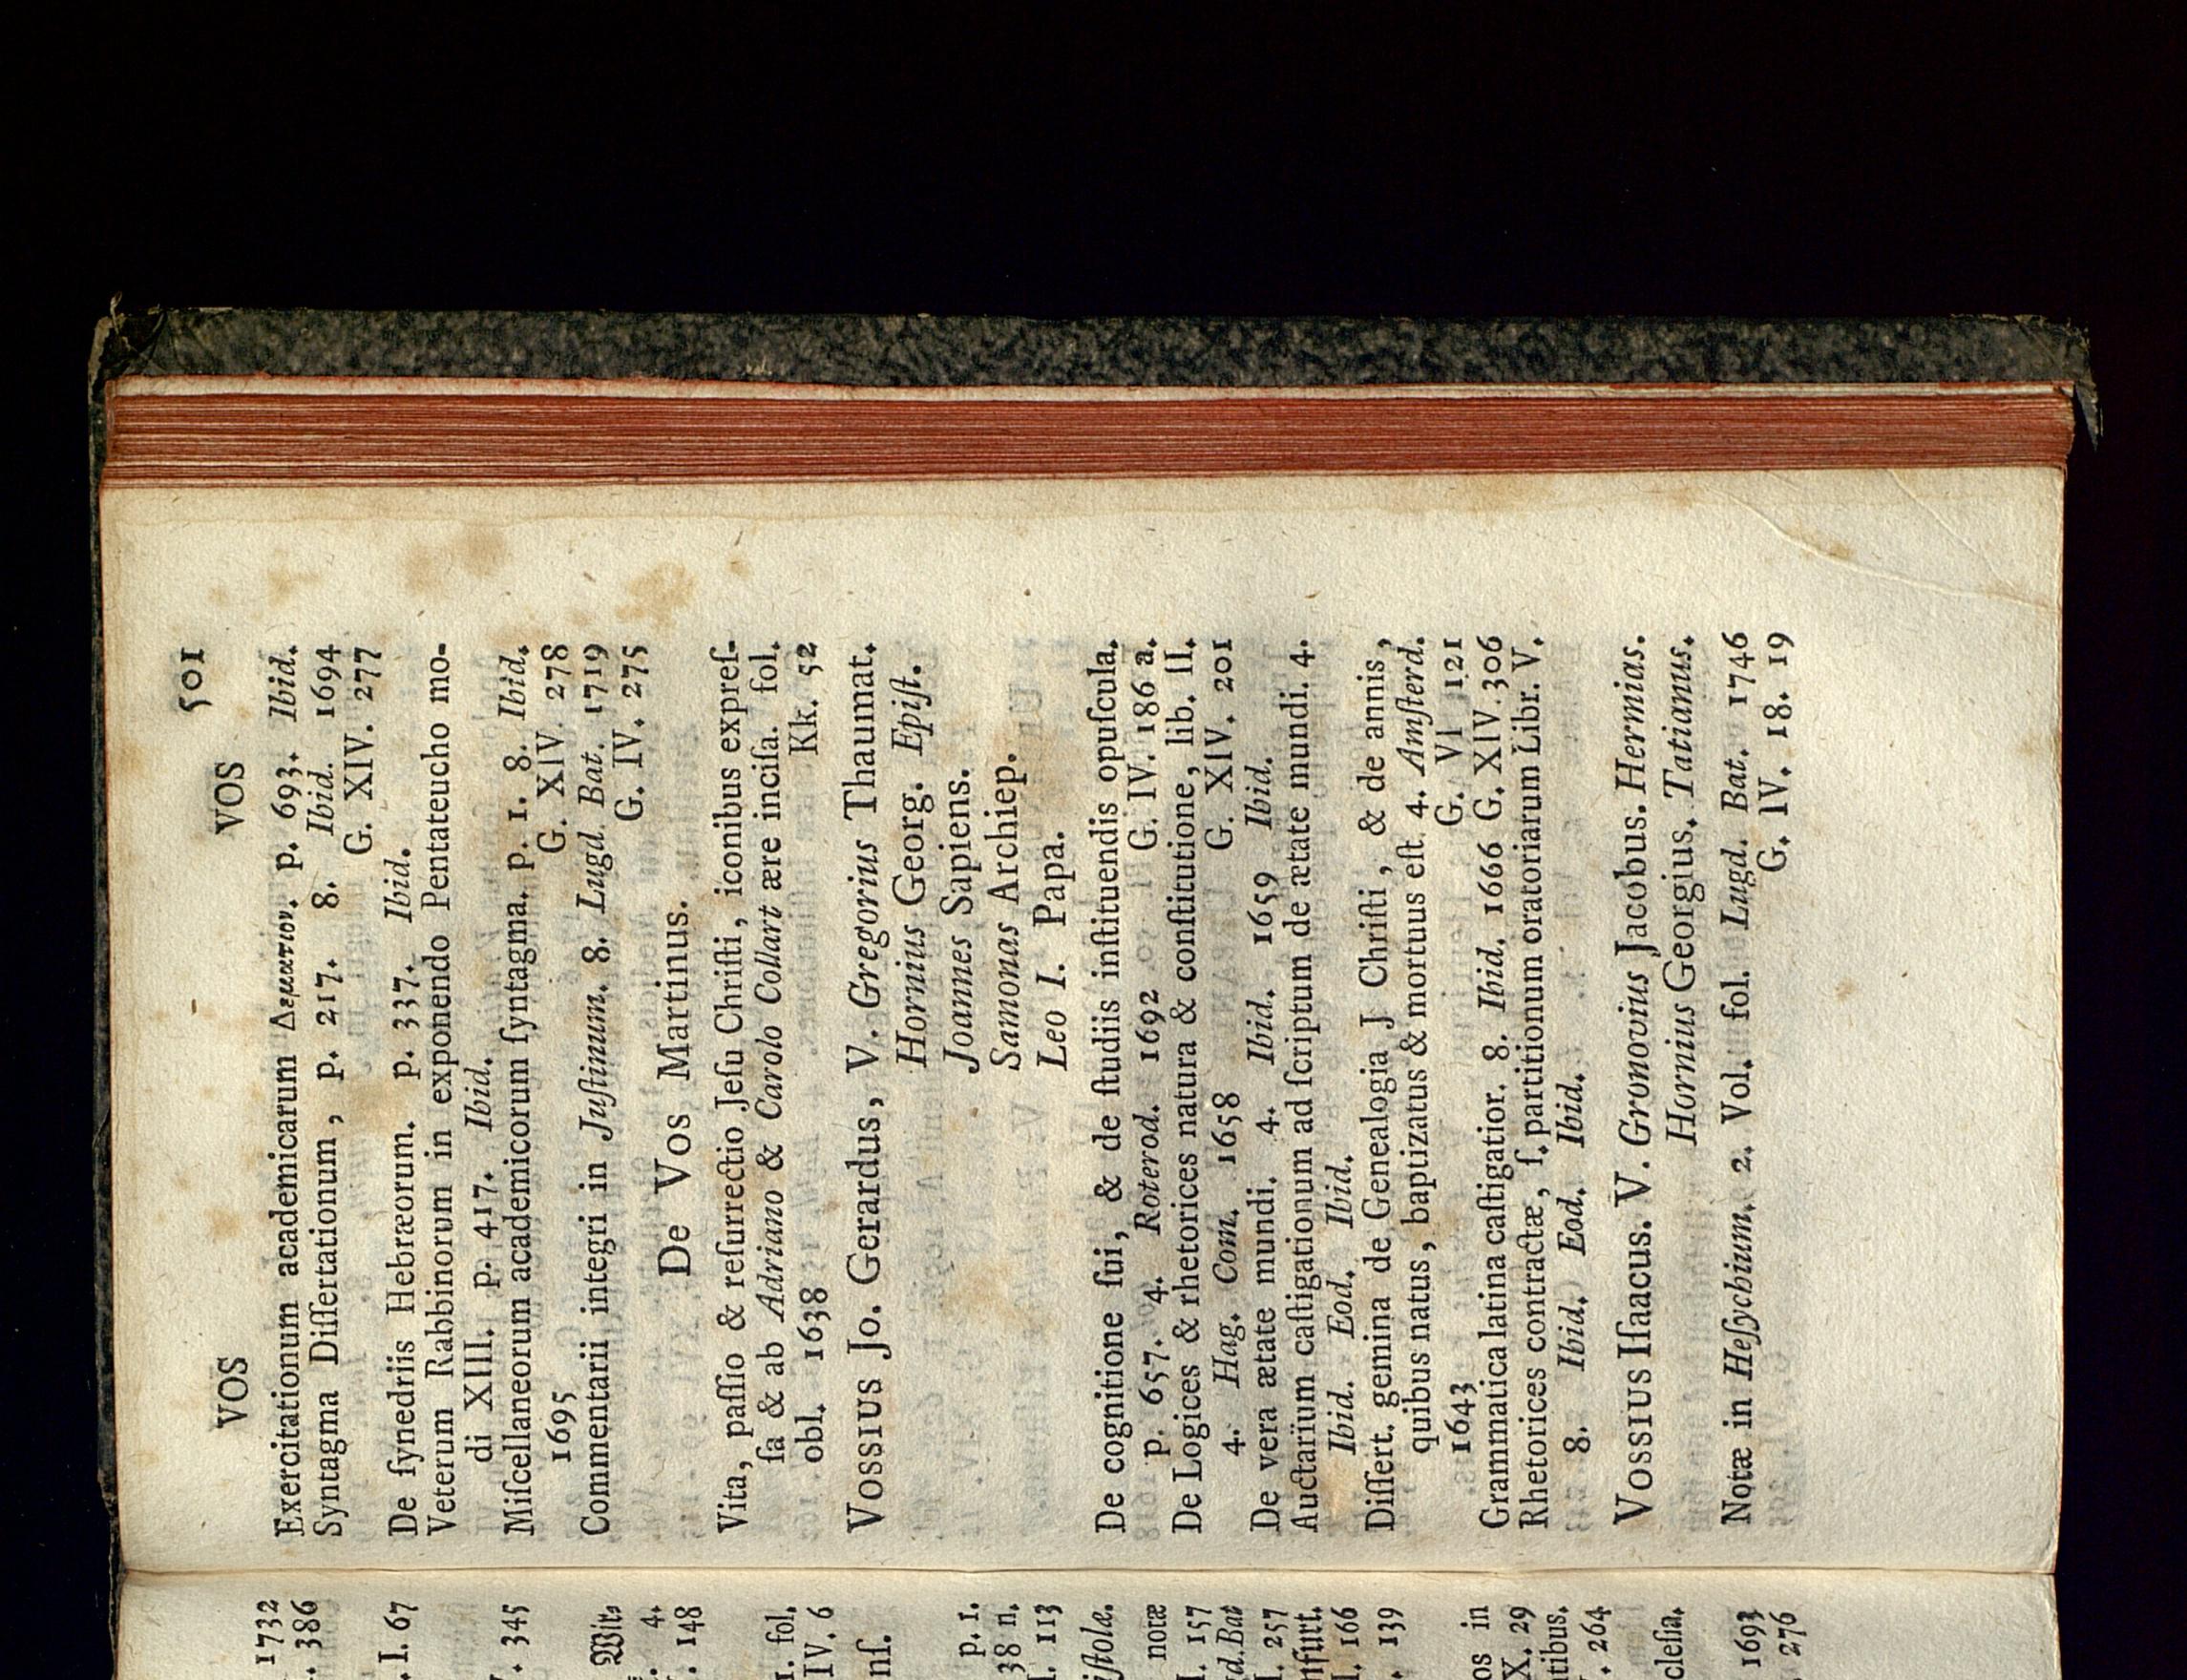 1732
. 386
. I. 67
. 345
Wit.
. 4.
. 148
1. fol.
IV. 6
nſ.
p. 1.
38 n.
. 113
iſtolæ.
notæ
I. 157
gd. Bat
I. 257
nfurt.
I. 166
. 139
os in
X. 29
tibus.
. 264
cleſia.
1693
276
VOS VOS 501
Exercitationum academicarum Δεματιον. p. 693. Ibid.
Syntagma Diſſertationum, p. 217. 8. Ibid. 1694
G. XIV. 277
De ſynedriis Hebræorum. p. 337. Ibid.
Veterum Rabbinorum in exponendo Pentateucho mo-
di XIII. p. 417. Ibid.
Miſcellaneorum academicorum ſyntagma. p. 1. 8. Ibid.
1695 G. XIV. 278
Commentarii integri in Juſtinum. 8. Lugd. Bat. 1719
G. IV. 275
De Vos Martinus.
Vita, paſſio & reſurrectio Jeſu Chriſti, iconibus expreſ-
ſa & ab Adriano & Carolo Collart ære inciſa. fol.
obl. 1638 Kk. 52
Vossius Jo. Gerardus, V. Gregorius Thaumat.
Hornius Georg. Epiſt.
Joannes Sapiens.
Samonas Archiep.
Leo I. Papa.
De cognitione ſui, & de ſtudiis inſtituendis opuſcula.
p. 657. 4. Roterod. 1692 G. IV. 186 a.
De Logices & rhetorices natura & conſtitutione, lib. II.
4. Hag. Com. 1658 G. XIV. 201
De vera ætate mundi. 4. Ibid. 1659 Ibid.
Auctarium caſtigationum ad ſcriptum de ætate mundi. 4.
Ibid. Eod. Ibid.
Diſſert. gemina de Genealogia J Chriſti, & de annis,
quibus natus, baptizatus & mortuus eſt. 4. Amſterd.
1643 G. VI 121
Grammatica latina caſtigatior. 8. Ibid. 1666 G. XIV. 306
Rhetorices contractæ, ſ. partitionum oratoriarum Libr. V.
8. Ibid. Eod. Ibid.
Vossius Iſaacus. V. Gronovius Jacobus. Hermias.
Hornius Georgius. Tatianus.
Notæ in Heſychium. 2. Vol. fol. Lugd. Bat. 1746
G. IV. 18. 19